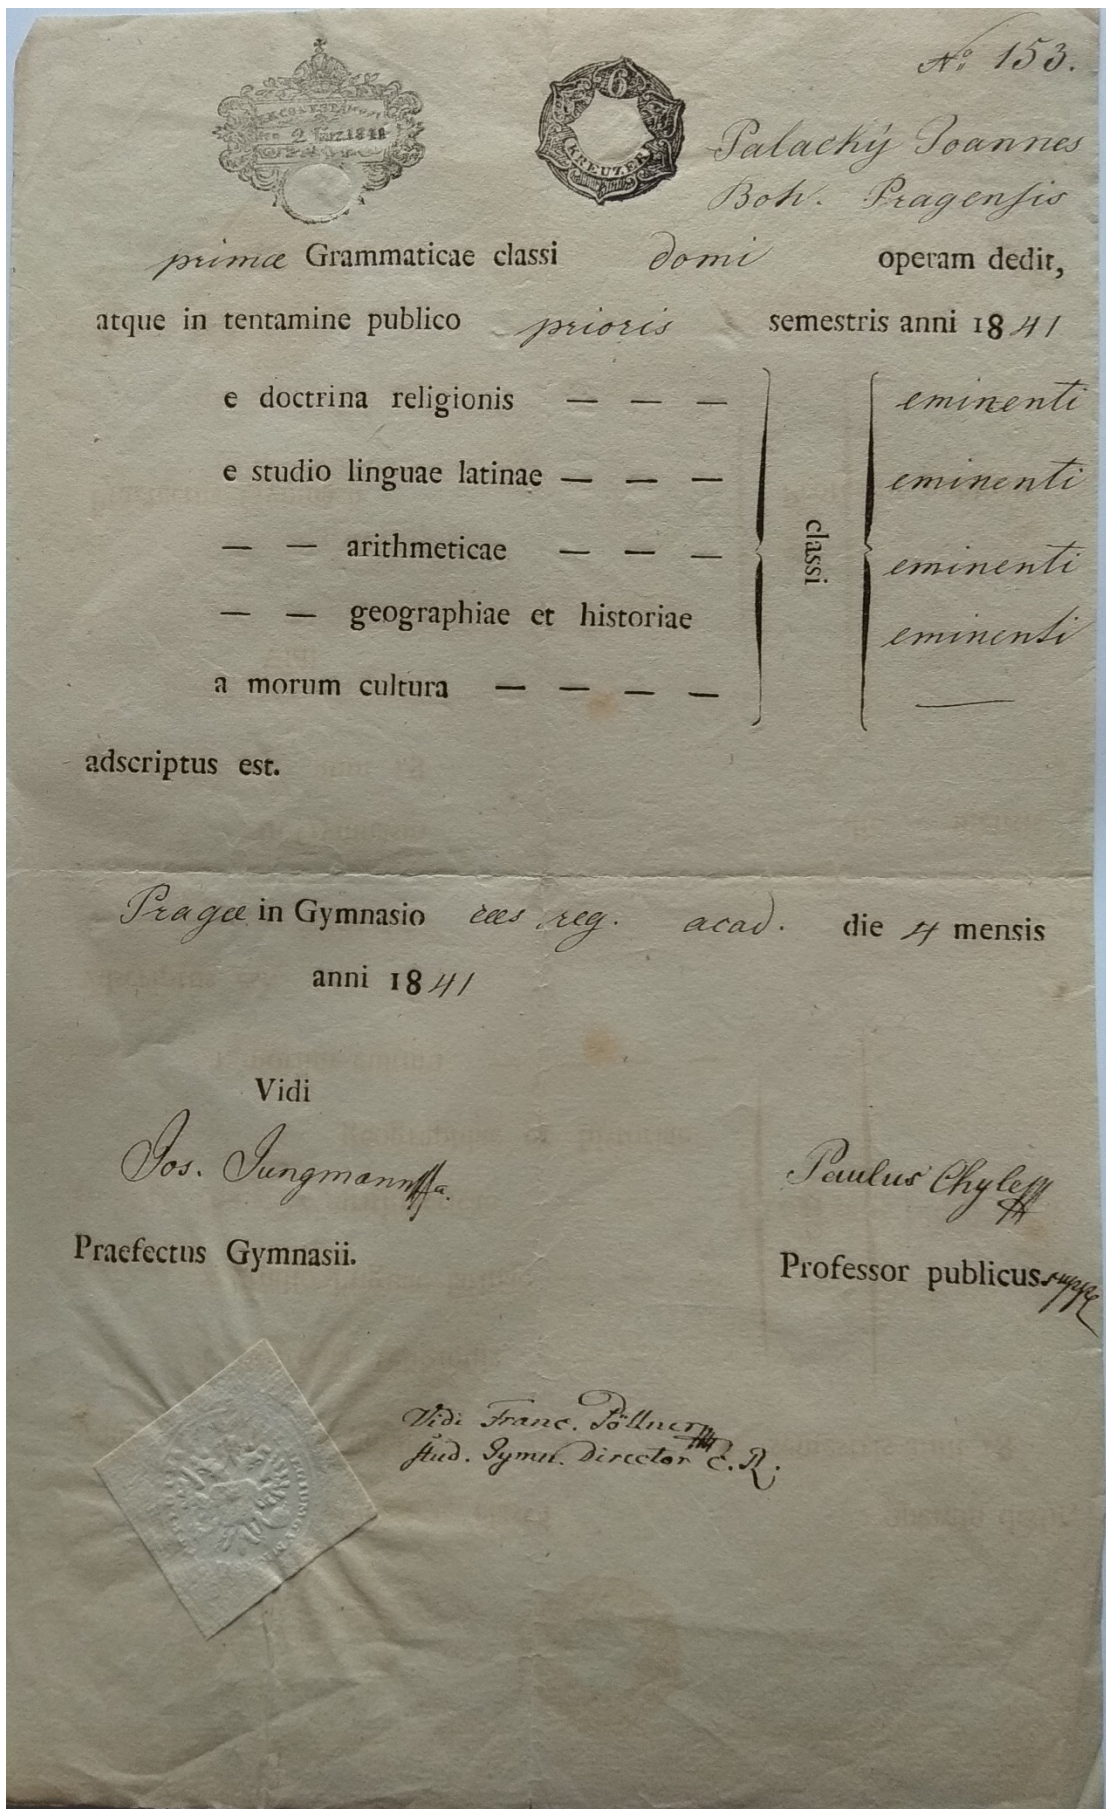 № 153.
2. März 1841
6
KREUZER
Palacký Joannes
Boh. Pragensis
primæ Grammaticae classi domi operam dedit,
atque in tentamine publico prioris semestris anni 1841
e doctrina religionis — — — eminenti
e studio linguae latinae — — — eminenti
classi
— — arithmeticae — — — eminenti
— — geographiae et historiae eminenti
a morum cultura — — — — —
adscriptus est.
Pragæ in Gymnasio reg. acad. die 4 mensis
anni 1841
Vidi
Jos. Jungmann
Paulus Chyle
Praefectus Gymnasii.
Professor publicus
Vidi Franc. Pöllner
stud. Gymn. Director C. R.